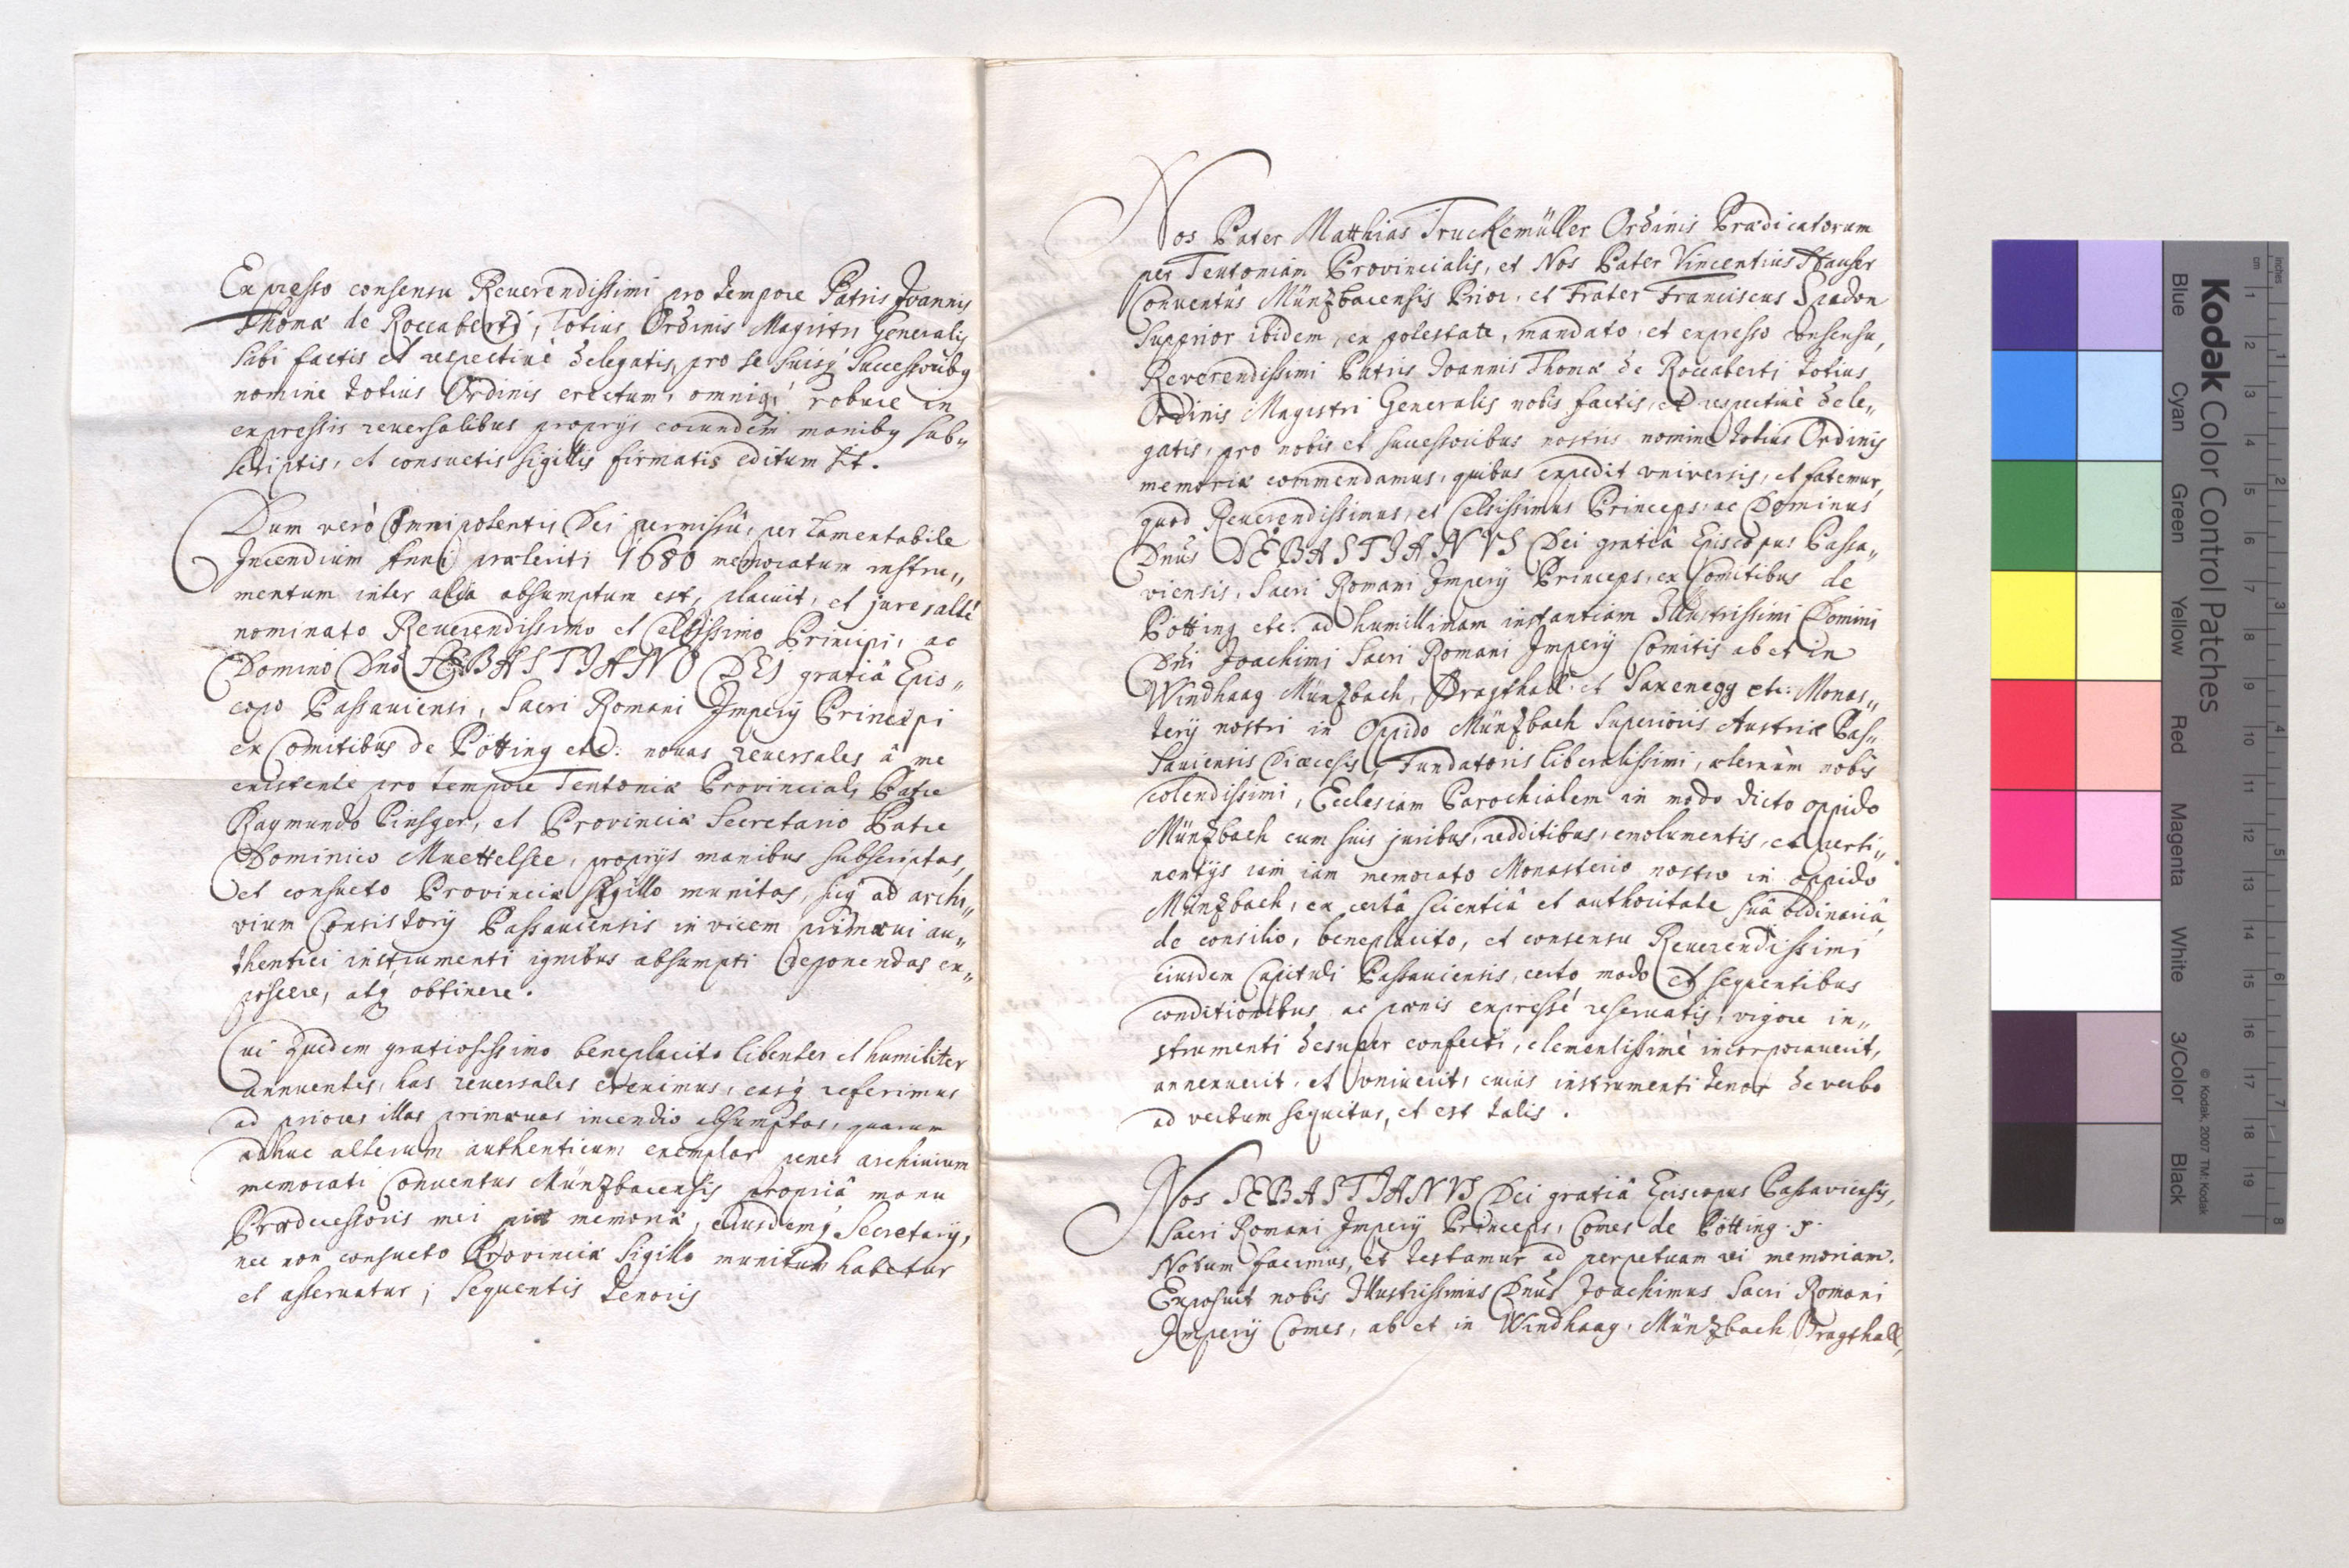 Expresso consensu Reuerendissimi pro tempore Patris Joannis
Thomæ de Roccaberti, totius Ordinis Magistri Generalis
sibi factis et respectiuè delegatis, pro se suisq́ Successoribq
nomine totius Ordinis erectum, omniq́ robore in
expressis reuersalibus proprys eorundem manibq sub„
scriptis, et consuetis sigillis firmatis editum sit.
Dum verò Omnipotentis Dei permissu, per lamentabile
Incendium Anni præteriti 1680 memoratum instru„
mentum inter alia absumptum est, placuit, et jure salté
nominato Reuerendissimo et Celsissimo Principi, ac
Domino Dno SEBASTIANO DEI gratiâ Epis„
copo Passauiensi, Sacri Romani Impery Principi
ex Comitibus de Pötting etc: nouas reuersales â me
existente pro tempore Teutoniæ Provinciali Patre
Raymundo Pinsger, et Provinciæ Secretario Patre
Dominico Muettelsee, proprys manibus subscriptas,
et consueto Provinciæ sigillo munitas, sicq́ ad archi„
vium Consistory Passauiensis in vicem primæui au„
thentici instrumenti ignibus absumpti deponendas ex„
poscere, atq́ obtinere.
Cui quidem gratiosissimo beneplacito libenter et humiliter
annuentes, has reuersales eremimus, easq́ referimus
ad priores illas primæuas incendio absumptas, quarum
adhuc alterum authenticum exemplar penes archiuium
memorati Conuentus Münzbacensis propriâ manu
Prædecessoris mei piæ memoriæ, eiusdemq́ Secretary,
nec non consueto Provinciæ Sigillo munitum habetur
et asseruatur; sequentis tenoris
Nos Pater Matthias Truckemüller Ordinis Prædicatorum
per Teutoniam Provincialis, et Nos Pater Vincentius Hauser
Conuentûs Münzbacensis Prior, et Frater Franciscus Spadon
Supprior ibidem, ex potestate, mandato, et expresso consensu,
Reverendissimi Patris Joannis Thomæ de Roccaberti totius
Ordinis Magistri Generalis nobis factis, et respectiuè dele„
gatis, pro nobis et successoribus nostris nomine totius Ordinis
memoriæ commendamus, quibus expedit vniversis, et fatemur,
quod Reuerendissimus, et Celsissimus Princeps, ac Dominus
Dnus SEBASTIANVS Dei gratiâ Episcopus Passa„
viensis, Sacri Romani Impery Princeps, ex Comitibus de
Pötting etc. ad humillimam instantiam Illustrissimi Domini
Dni Joachimi Sacri Romani Impery Comitis ab et in
Windhaag Münzbach, Pragthall et Saxenegg etc: Monas„
tery nostri in Oppido Münzbach Superioris Austriæ Pas„
sauiensis Diæcesis, Fundatoris liberalissimi, æternùm nobis
colendissimi, Ecclesiam Parochialem in modo dicto oppido
Münzbach cum suis juribus, redditibus, emolumentis, et perti„
nentys iam iam memorato Monasterio nostro in oppido
Münzbach, ex certâ scientiâ et authoritate suâ ordinariâ,
de consilio, beneplacito, et consensu Reuerendissimi
eiusdem Capituli Passauiensis, certo modo et sequentibus
conditionibus ac pænis expressé reseruatis, vigore in„
strumenti desuper confecti, clementissimè incorporauerit,
annexuerit, et vniuerit, cuius instrumenti tenor de verbo
ad verbum sequitur, et est talis.
Nos SEBASTIANVS Dei gratiâ Episcopus Passaviensis,
Sacri Romani Impery Princeps, Comes de Pötting.
Notum facimus, et testamur ad perpetuam rei memoriam.
Exposuit nobis Illustrissimus Dnus Joachimus Sacri Romani
Impery Comes, ab et in Windhaag, Münzbach Pragthall,
Kodak Color Control Patches
© Kodak, 2007 TM: Kodak
Blue Cyan Green Yellow Red Magenta White 3/Color Black
cm 1 2 3 4 5 6 7 8 9 10 11 12 13 14 15 16 17 18 19
inches 1 2 3 4 5 6 7 8